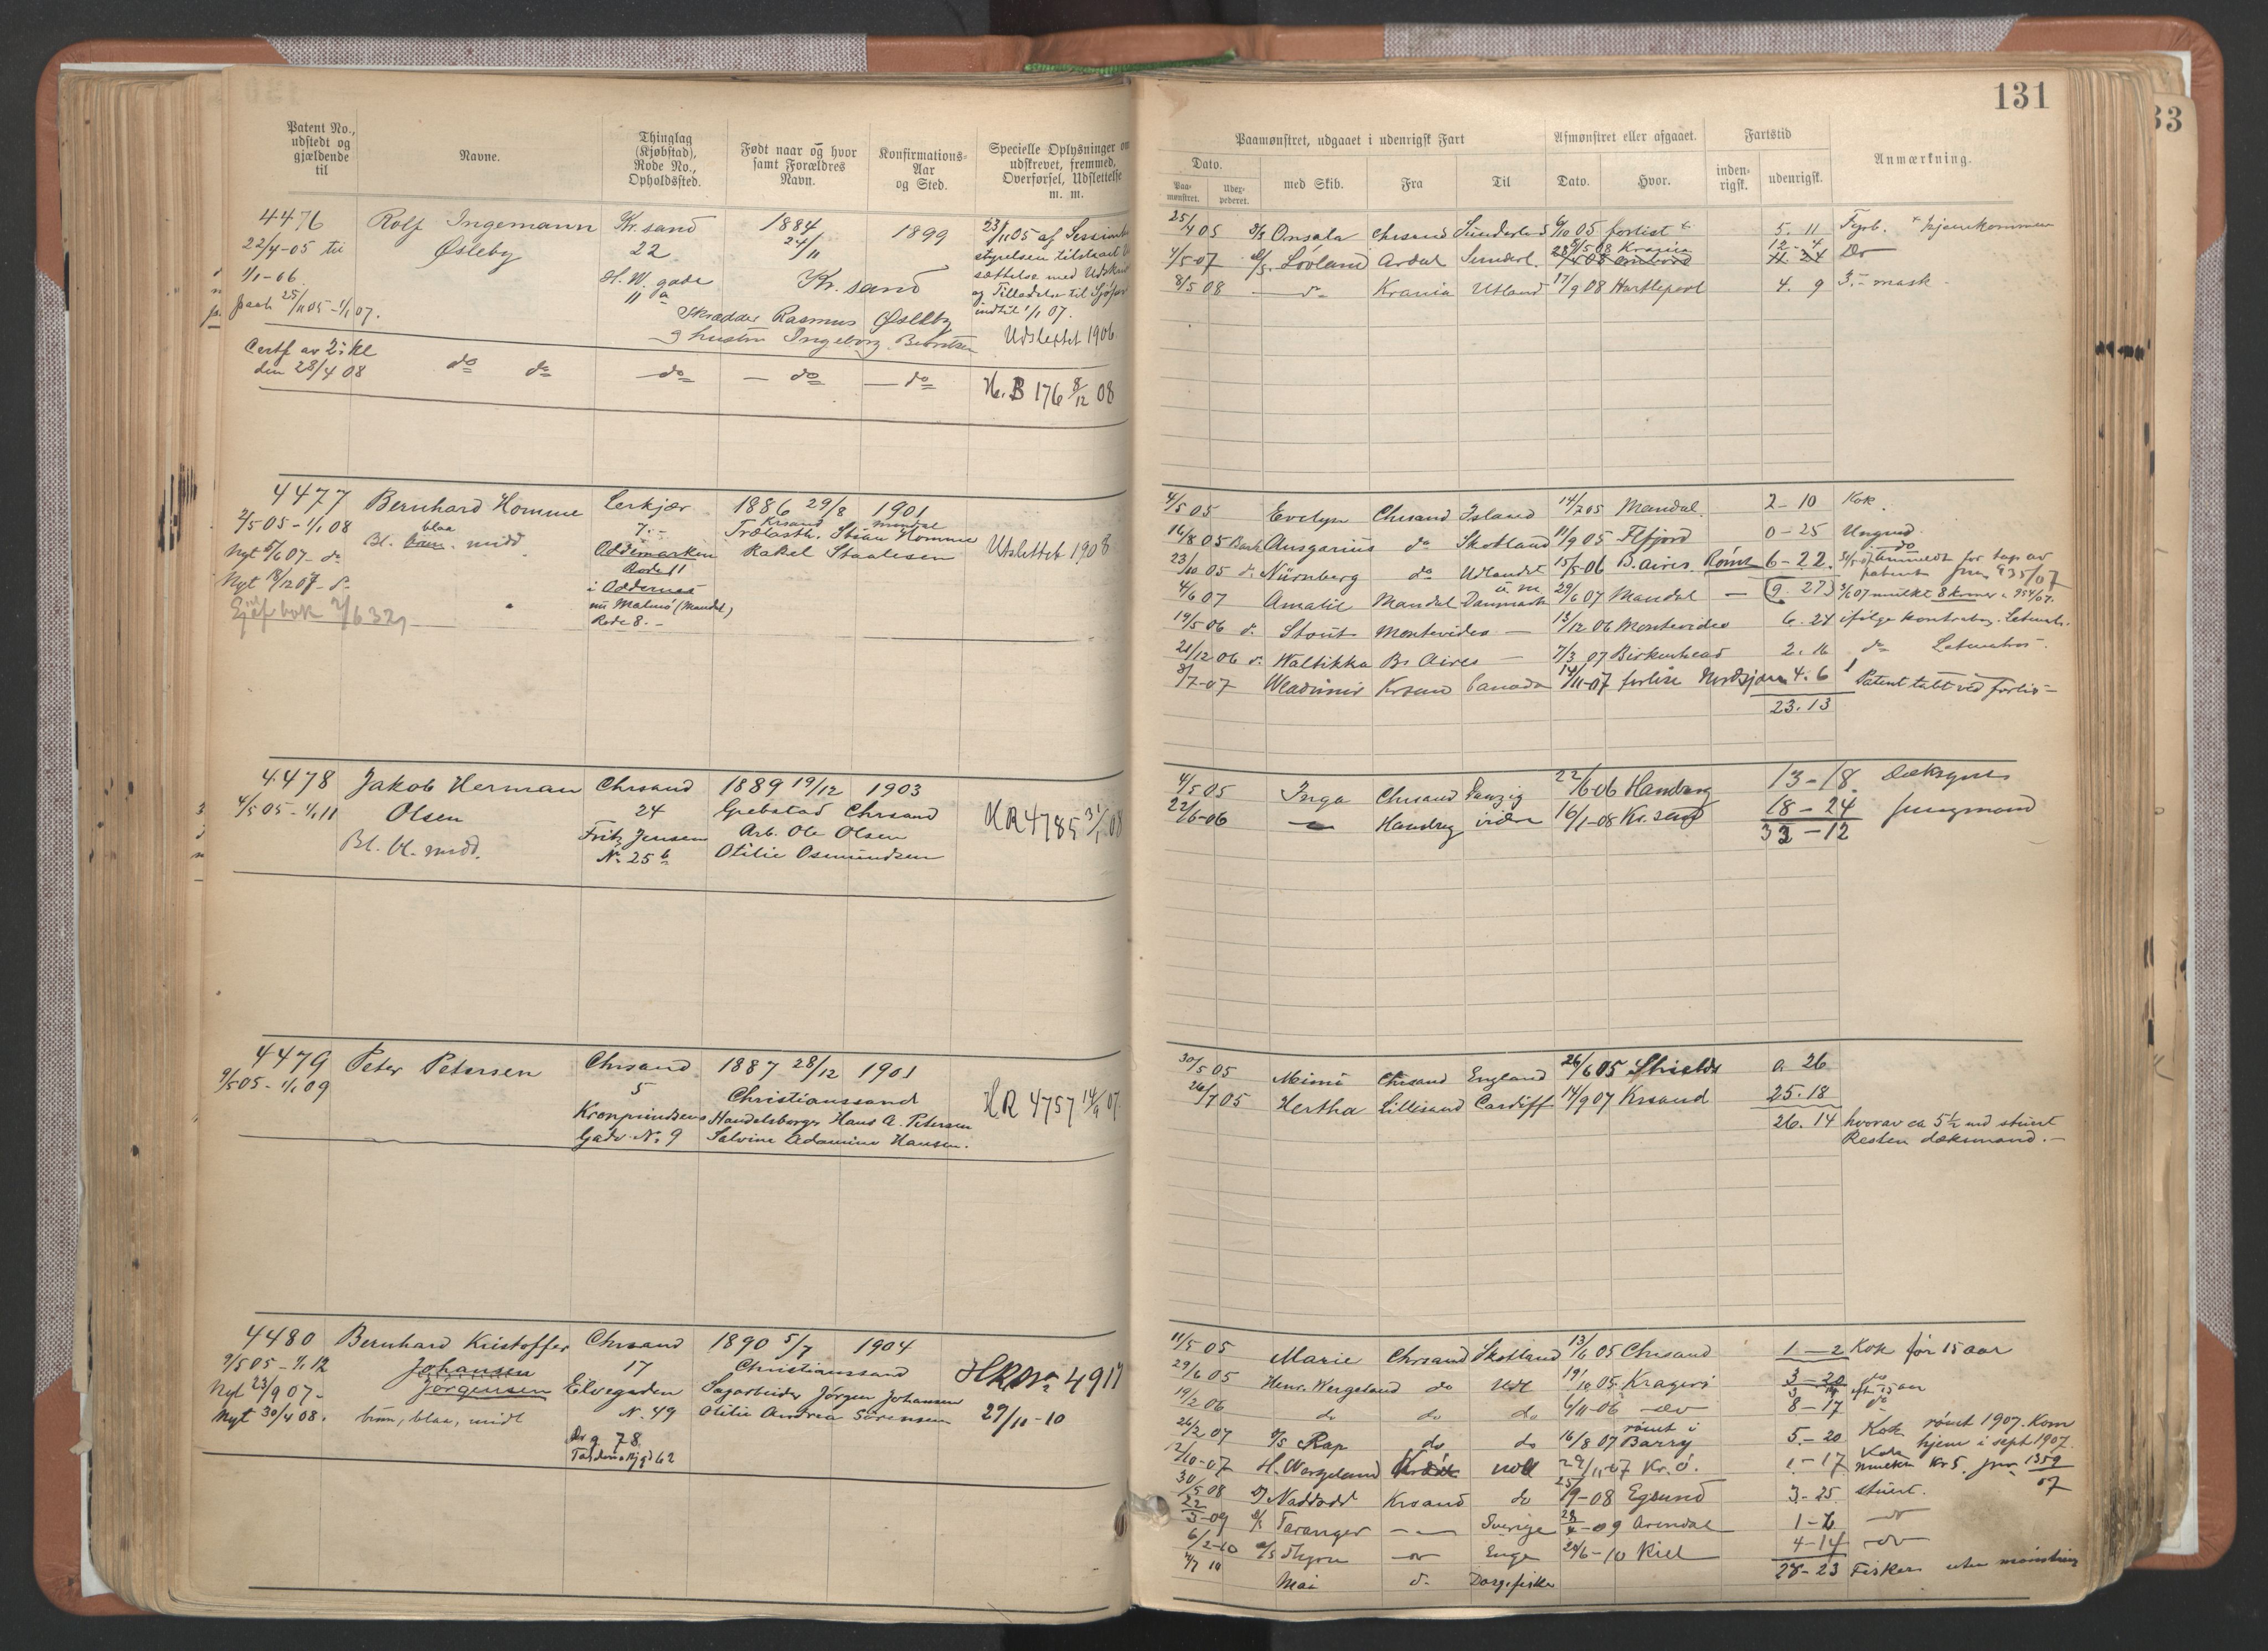 131
33
Patent No., udstedt og gjældende til
Navne.
Thinglag (Kjøbstad), Rode No., Opholdssted.
Født naar og hvor samt Forældres Navn.
Konfirmations-Aar og Sted.
Specielle Oplysninger om udskrevet, fremmed, Overførsel, Udslettelse m. m.
Paamønstret, udgaaet i udenrigsk Fart
Afmønstret eller afgaaet.
Fartstid
Anmærkning.
Dato.
Paa-mønstret.
med Skib.
Fra
Til
Dato.
Hvor.
inden-rigsk.
udenrigsk.
4476 Rolf Ingemann Kr.sand 1884 1899 23/11 05 af Sessions
22/4-05 til Østeby 22 24/11 styrelsen tilstaaet
1/1-06. H. W. gade Kr. sand sættelse med
11 a og Tilladelse til
25/11 05 - 1/1 07. Skrædder Rasmus Østeby indtil 1/1 07.
Hustru Ingeborg Udslettet 1906
Certf av 2. kl
den 28/4 08 do do do do do H. B 176 8/12 08
4477 Bernhard Homme Lerkjær 1886 29/8 1901
2/5 05 - 1/1 08 blaa 7. Krsand Mandal
Bl. brun. midd Homme
Nyt 5/6 07 - do Oddemarken Rakel Staalesen Utslettet 1908
Rode 11
Nyt 18/12 07 - do i Oddernes
nu Malmö (Mandal)
2/6 32 Rode 8. -
4478 Jakob Herman Chrsand 1889 19/12 1903
4/5 05 - 1/1 11 Olsen 24 Grebstad Chrsand HR 4785 31/1 08
Bl. bl. midd. Fritz Jensen Arb. Ole Olsen
No 25 b Otilie Osmundsen
4479 Peter Petersen Chrsand 1887 28/12 1901
9/5 05 - 1/1 09 5 Christianssand HR 4757 14/9 07
Kronprindsens Handelsborger Hans A. Petersen
Gade No 9 Salvine Adamine Hansen.
4480 Bernhard Kristoffer Chrsand 1890 5/7 1904
9/5 05 - 1/1 12 Johansen 17 Christianssand HR No 4917
Nyt 23/9 07 - Jørgensen Elvegaden Sagarbeider Jørgen Johansen
Nyt 30/4 08. brun, blaa, midl N. 49 Otilie Andrea Sørensen 29/11-10
Drg 78
25/4 05 Onsala Chrsand Sunderland 6/10 05 forlist + 5. 11 Fyrb. + hjemkommen
4/5-07 Lovland Ardal Sunderl. 5/5 08 Krania 12 - 4 Do
8/5 08 do Krania Utland 17/9 08 Hartlepool 4. 9 3. mask
4/5 05 Evelyn Chrsand Island 14/7 05 Mandal. 2-10 Kok.
16/8 05 Bark Ansgarius do Skotland 11/9 05 Flfjord 0-25 Ungmd.
23/10 05 do Nürnberg do Udlandet 15/5-06 B. aires. Rømt 6-22. anmeldt for tap av patent jrn 935/07
4/6 07 Amalie Mandal Danmark 29/6 07 Mandal 9. 27 3/6 07 mulkt 8 kroner 954/07.
19/5-06 do Stout Montevideo 13/12 06 Montevideo 6. 24 ifølge kontrabog
21/12 06 do Waltikka Bs Aires 7/3 07 Birkenhead 2. 16 do
3/7-07 Wladimir Krsand Canada 14/11-07 forlist Nordsjøen 4. 6 Patent tabt ved forlis -
23. 13
4/5 05 Inga Chrsand Danzig 22/6 06 Hamburg 13-18. Dæksgut
22/6-06 Hambrg 16/1-08 Kr. sand 18-24 jungmand
33-12
30/5 05 Mimi Chrsand England 26/6 05 Shields 0. 26
26/7 05 Hertha Lillesand Cardiff 14/9 07 Krsand 25. 18
26. 14 hvorav ca 5½ md stuert
Resten dæksmand. -
11/5 05 Marie Chrsand Skotland 13/6 05 Chrsand 1-2 Kok før 15 aar
29/6 05 Henr. Wergeland do Udl 19/10 05 Kragerø 3-20
19/2 06 do do do 6/11-06 do 8-17 do
26/2 07 Rap do do 16/8 07 rømt i Barry 5-20 Kok rømt 1907. Kom hjem i sept 1907.
12/10-07 H. Wergeland 29/11-07 Kr. ø. 1-17 Kok mulkt Kr 5. jrn 1359/07
30/5 08 Naddodd Krsand do 25/9-08 Egsund 3-25 stuert.
22/3-09 Taranger Sverige 28/4-09 Arendal 1-6 do
6/2-10 Thyra do Enge 24/6-10 Kiel 4-14 do
4/7 10 Mai do Dorgefiske 28-23 Fisker uten mønstring